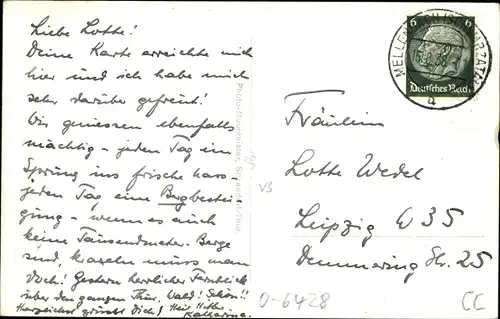 Liebe Lotte!
Deine Karte erreichte mich
hier und ich habe mich
sehr darüber gefreut!
Wir geniessen ebenfalls
mächtig - jeden Tag im
Sprung ins frische
jeden Tag eine Bergbestei-
gung - wenn es auch
keine Tausender Berge
sind, kraxeln muss man
doch! Gestern herrlicher Fernblick
über den ganzen Thür. Wald! Schön!!
Herzlichst grüsst Dich! Heil Hitler
Katharina.
Photo-Neumeister,
MELLENBACH
6 6
Deutsches Reich
a
Fräulein
Lotte Wedel
Leipzig W 35
Demmering Str. 25
VB
0-6428
CC